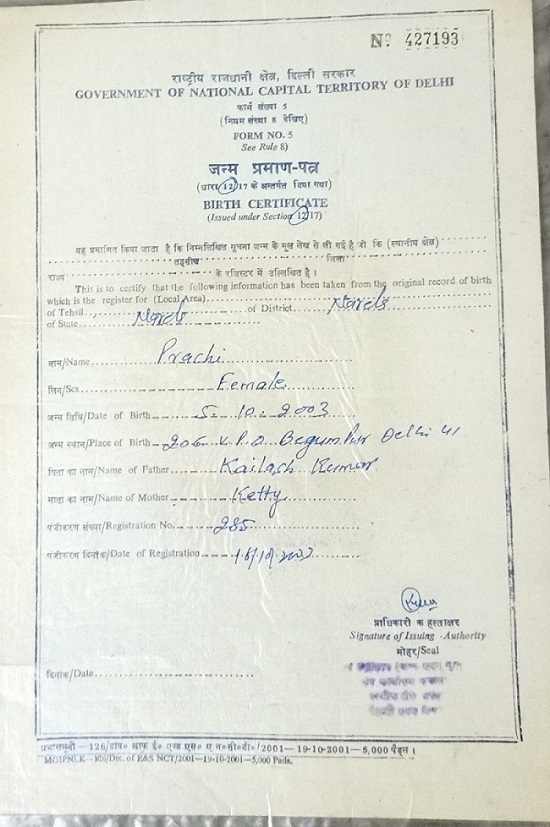 Nº 427193
राष्ट्रीय राजधानी क्षेत्र, दिल्ली सरकार
GOVERNMENT OF NATIONAL CAPITAL TERRITORY OF DELHI
फार्म संख्या 5
(नियम संख्या 8 देखिए)
FORM NO. 5
See Rule 8)
जन्म प्रमाण-पत्र
(धारा 12/17 के अन्तर्गत दिया गया)
BIRTH CERTIFICATE
(Issued under Section 12/17)
यह प्रमाणित किया जाता है कि निम्नलिखित सूचना जन्म के मूल लेख से ली गई है जो कि (स्थानीय क्षेत्र)
तहसील जिला
राज्य के रजिस्टर में उल्लिखित है।
This is to certify that the following information has been taken from the original record of birth
which is the register for (Local Area)
of Tehsil of District
of State
नाम/Name Prachi
लिंग/Sex Female
जन्म तिथि/Date of Birth 5. 10. 2003
जन्म स्थान/Place of Birth 206 V.P.O Begumpur Delhi 41
पिता का नाम/Name of Father Kailash Kumar
माता का नाम/Name of Mother Ketty
पंजीकरण संख्या/Registration No. 285
पंजीकरण दिनांक/Date of Registration
प्राधिकारी क हस्ताक्षर
Signature of Issuing -Authority
मोहर/Seal
दिनांक/Date
2001—19-10-2001—5,000 पैड्स।
MGIPNLK—126/Dir. of E&S NCT/2001—19-10-2001—5,000 Pads.